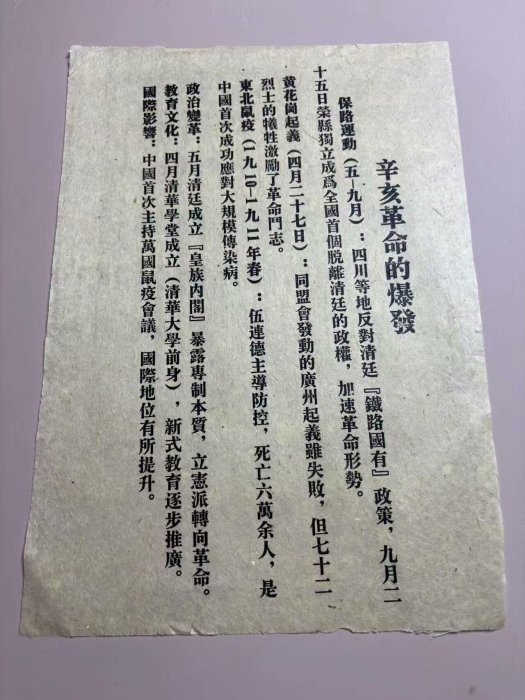 辛亥革命的爆發
保路運動（五—九月）：四川等地反對清廷『鐵路國有』政策，九月二
十五日榮縣獨立成爲全國首個脱離清廷的政權，加速革命形勢。
黄花崗起義（四月二十七日）：同盟會發動的廣州起義雖失敗，但七十二
烈士的犧牲激勵了革命鬥志。
東北鼠疫（一九10—1九11年春）：伍連德主導防控，死亡六萬余人，是
中國首次成功應對大規模傳染病。
政治變革：五月清廷成立『皇族内閣』暴露專制本質，立憲派轉向革命。
教育文化：四月清華學堂成立（清華大學前身），新式教育逐步推廣。
國際影響：中國首次主持萬國鼠疫會議，國際地位有所提升。